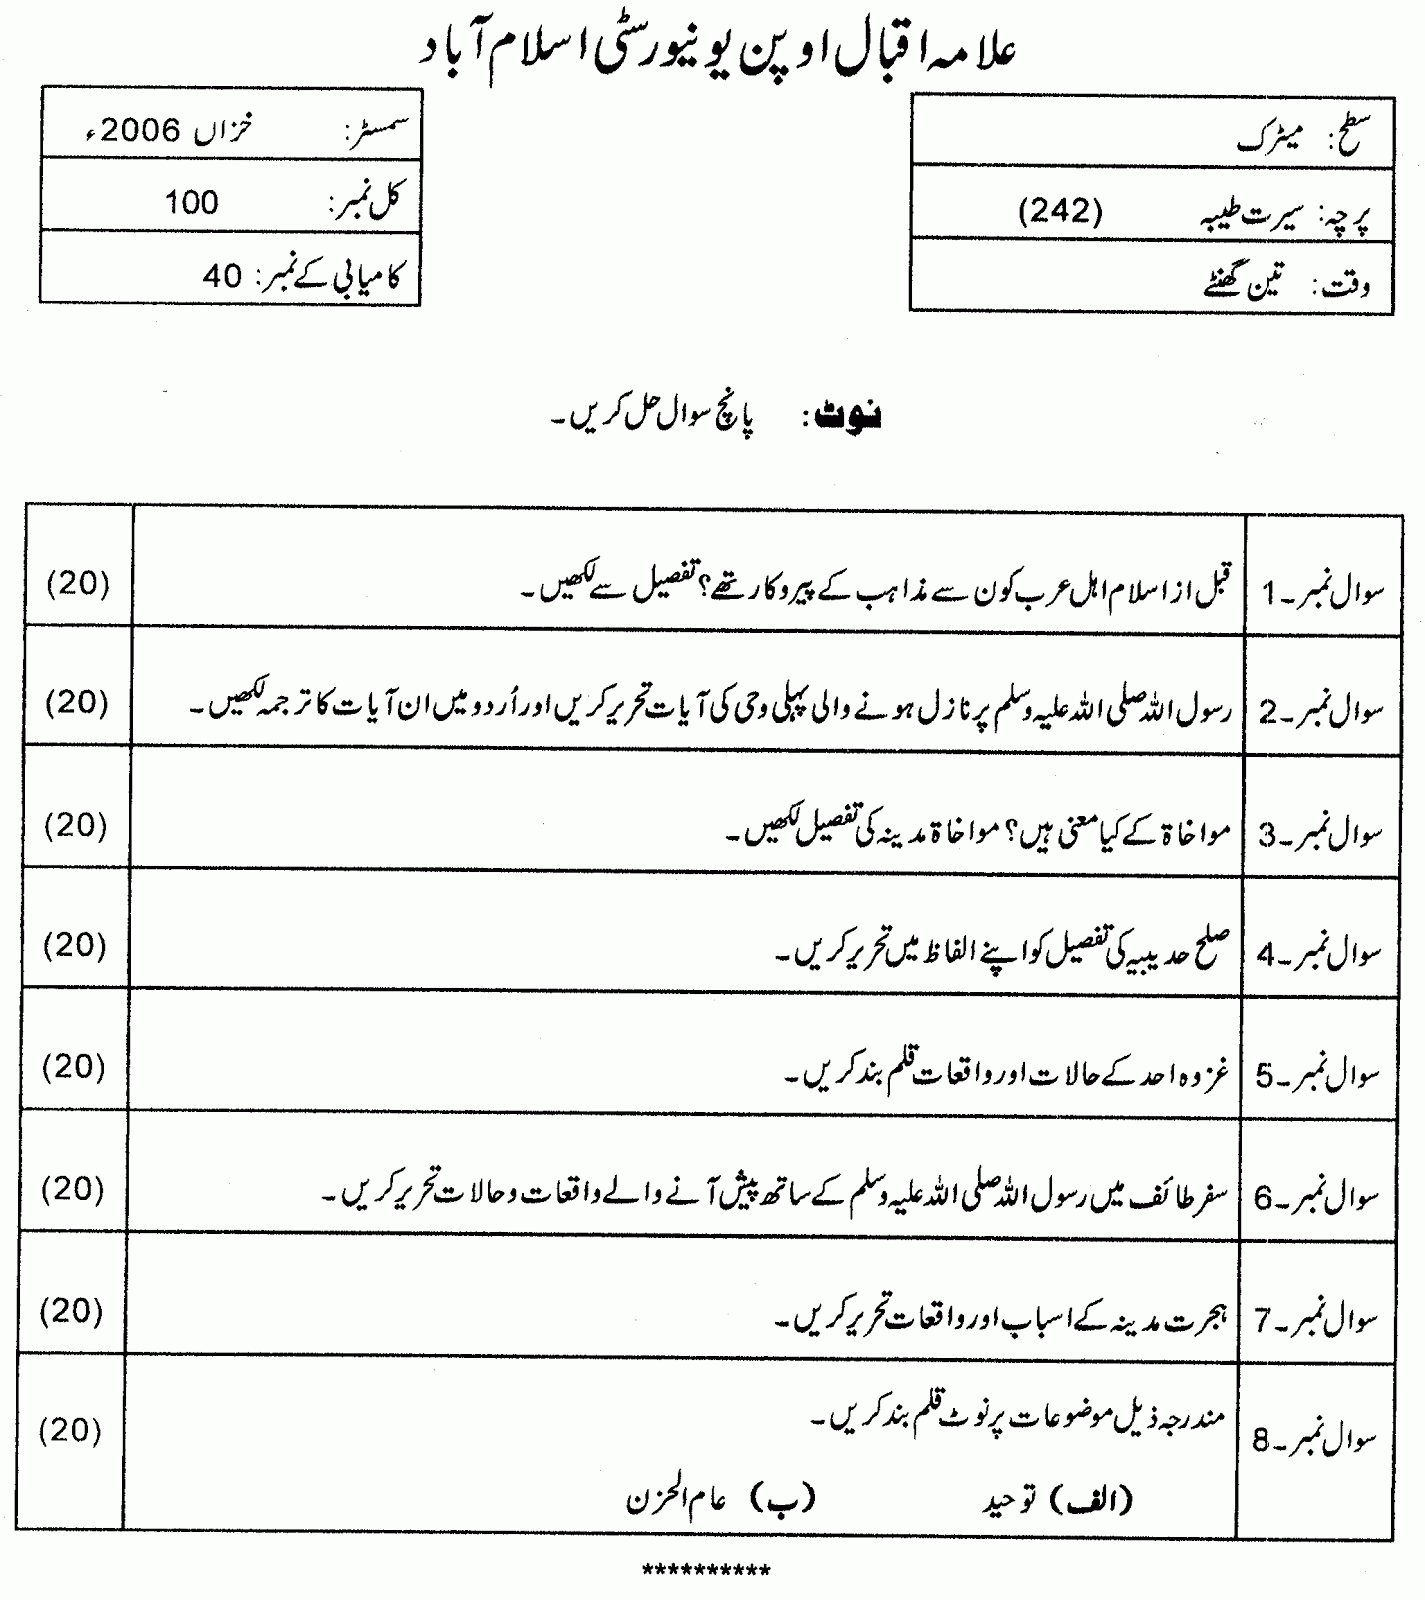 علامہ اقبال اوپن یونیورسٹی اسلام آباد
سطح: میٹرک
پرچہ: سیرت طیبہ (242)
وقت: تین گھنٹے
سمسٹر: خزاں 2006ء
کل نمبر: 100
کامیابی کے نمبر: 40
نوٹ: پانچ سوال حل کریں۔
سوال نمبر۔1 قبل از اسلام اہل عرب کون سے مذاہب کے پیروکار تھے؟ تفصیل سے لکھیں۔ (20)
سوال نمبر۔2 رسول اللہ صلی اللہ علیہ وسلم پر نازل ہونے والی پہلی وحی کی آیات تحریر کریں اور اُردو میں ان آیات کا ترجمہ لکھیں۔ (20)
سوال نمبر۔3 مواخاۃ کے کیا معنی ہیں؟ مواخاۃ مدینہ کی تفصیل لکھیں۔ (20)
سوال نمبر۔4 صلح حدیبیہ کی تفصیل کو اپنے الفاظ میں تحریر کریں۔ (20)
سوال نمبر۔5 غزوہ احد کے حالات اور واقعات قلم بند کریں۔ (20)
سوال نمبر۔6 سفر طائف میں رسول اللہ صلی اللہ علیہ وسلم کے ساتھ پیش آنے والے واقعات و حالات تحریر کریں۔ (20)
سوال نمبر۔7 ہجرت مدینہ کے اسباب اور واقعات تحریر کریں۔ (20)
سوال نمبر۔8 مندرجہ ذیل موضوعات پر نوٹ قلم بند کریں۔ (20)
(الف) توحید (ب) عام الحزن
**********